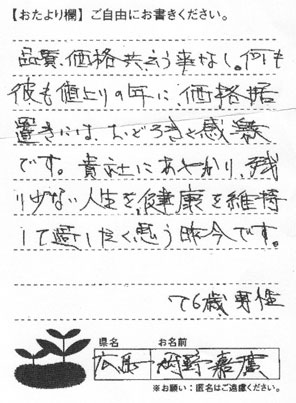 【おたより欄】ご自由にお書きください。
品質、価格共云う事なし。何も
彼も値上りの年に、価格据
置きには、おどろきと感激
です。貴社にあやかり、残
り少ない人生を、健康を維持
して過したく思う昨今です。
76歳 男性
県名
お名前
広島
岡野 嘉廣
※お願い：匿名はご遠慮ください。